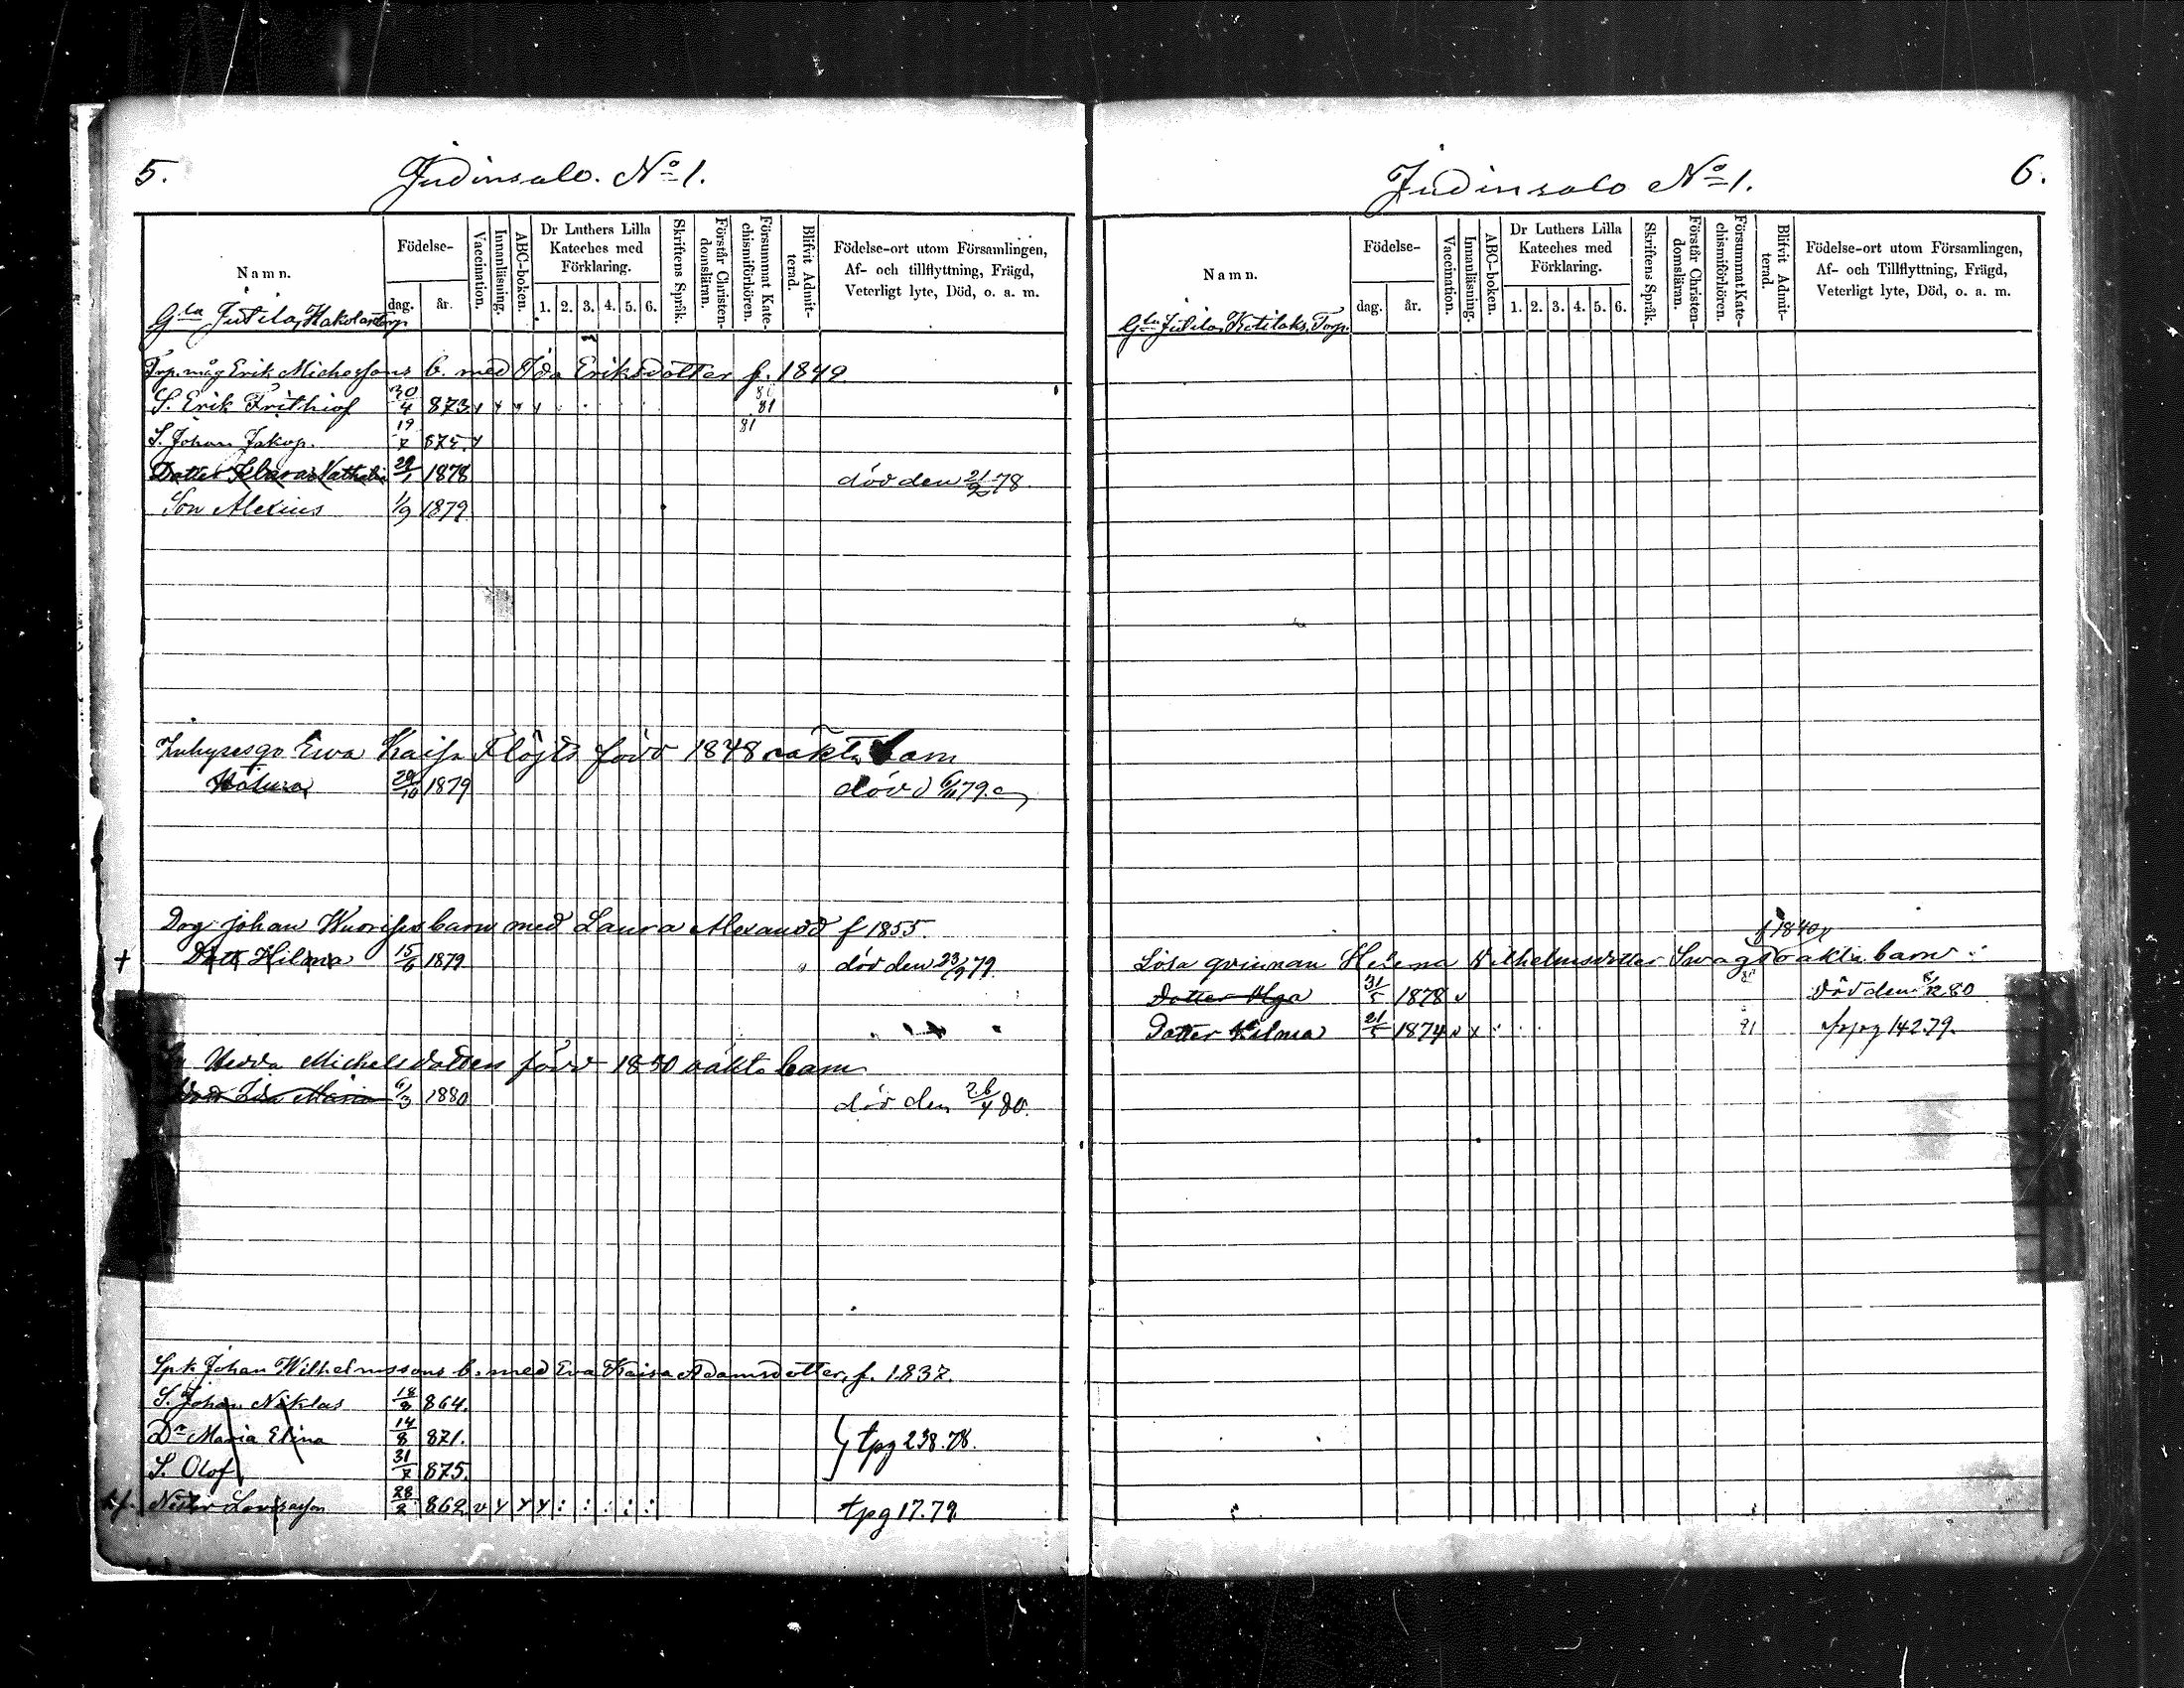 5.
Judinsalo. No 1.
Namn.
Födelse-
dag.
år.
Vaccination.
Innanläsning.
ABC-boken.
Dr Luthers Lilla
Kateches med
Förklaring.
1. 2. 3. 4. 5. 6.
Skriftens Språk.
Förstår Christen-
domsläran.
Försummat Kate-
chismiförhören.
Blifvit Admit-
terad.
Födelse-ort utom Församlingen,
Af- och tillflyttning, Frägd,
Veterligt lyte, Död, o. a. m.
Gla Jutila, Hakolan torp
Trp.måg Erik Michelssons b. med Ida Eriksdotter f. 1849.
S. Erik Frithiof 30/4 873 v 81
S. Johan Jakop. 19/7 875. v 81
Dotter Klara Nathalia 28/1 1878 död den 21/2 78.
Son Alexius 1/9 1879
Inhysesqv Ewa Kaisa Flöjts född 1848 oäkta barn
1879 död 6/11 79.
Drg Johan barn med Laura Alexandd f 1855.
+ Dott Hilma 15/6 1879 död den 23/9 79.
Hedda Michelsdotters född 1850 oäkta barn
Ida Maria 6/3 1880 död den 26/4 80.
Spk Johan Wilhelmssons b. med Eva Kaisa Adamsdotter, f. 1837.
S. Johan Niklas 18/8 864.
Dr Maria Elina 14/8 871. } tpg 238.78.
S. Olof 31/7 875.
Nestor Lovisason 28/2 862 v tpg 17.79.
Judinsalo No 1.
6.
Namn.
Födelse-
dag.
år.
Vaccination.
Innanläsning.
ABC-boken.
Dr Luthers Lilla
Kateches med
Förklaring.
1. 2. 3. 4. 5. 6.
Skriftens Språk.
Förstår Christen-
domsläran.
Försummat Kate-
chismiförhören.
Blifvit Admit-
terad.
Födelse-ort utom Församlingen,
Af- och Tillflyttning, Frägd,
Veterligt lyte, Död, o. a. m.
Gla Jutila, Torp.
f 1840
Lösa qvinnan Helena Vilhelmsdotter Swags oäkta barn:
Dotter Olga 31/5 1878 v Död den 8/12 80
Dotter Hilma 21/5 1874 v x 81 142.79.